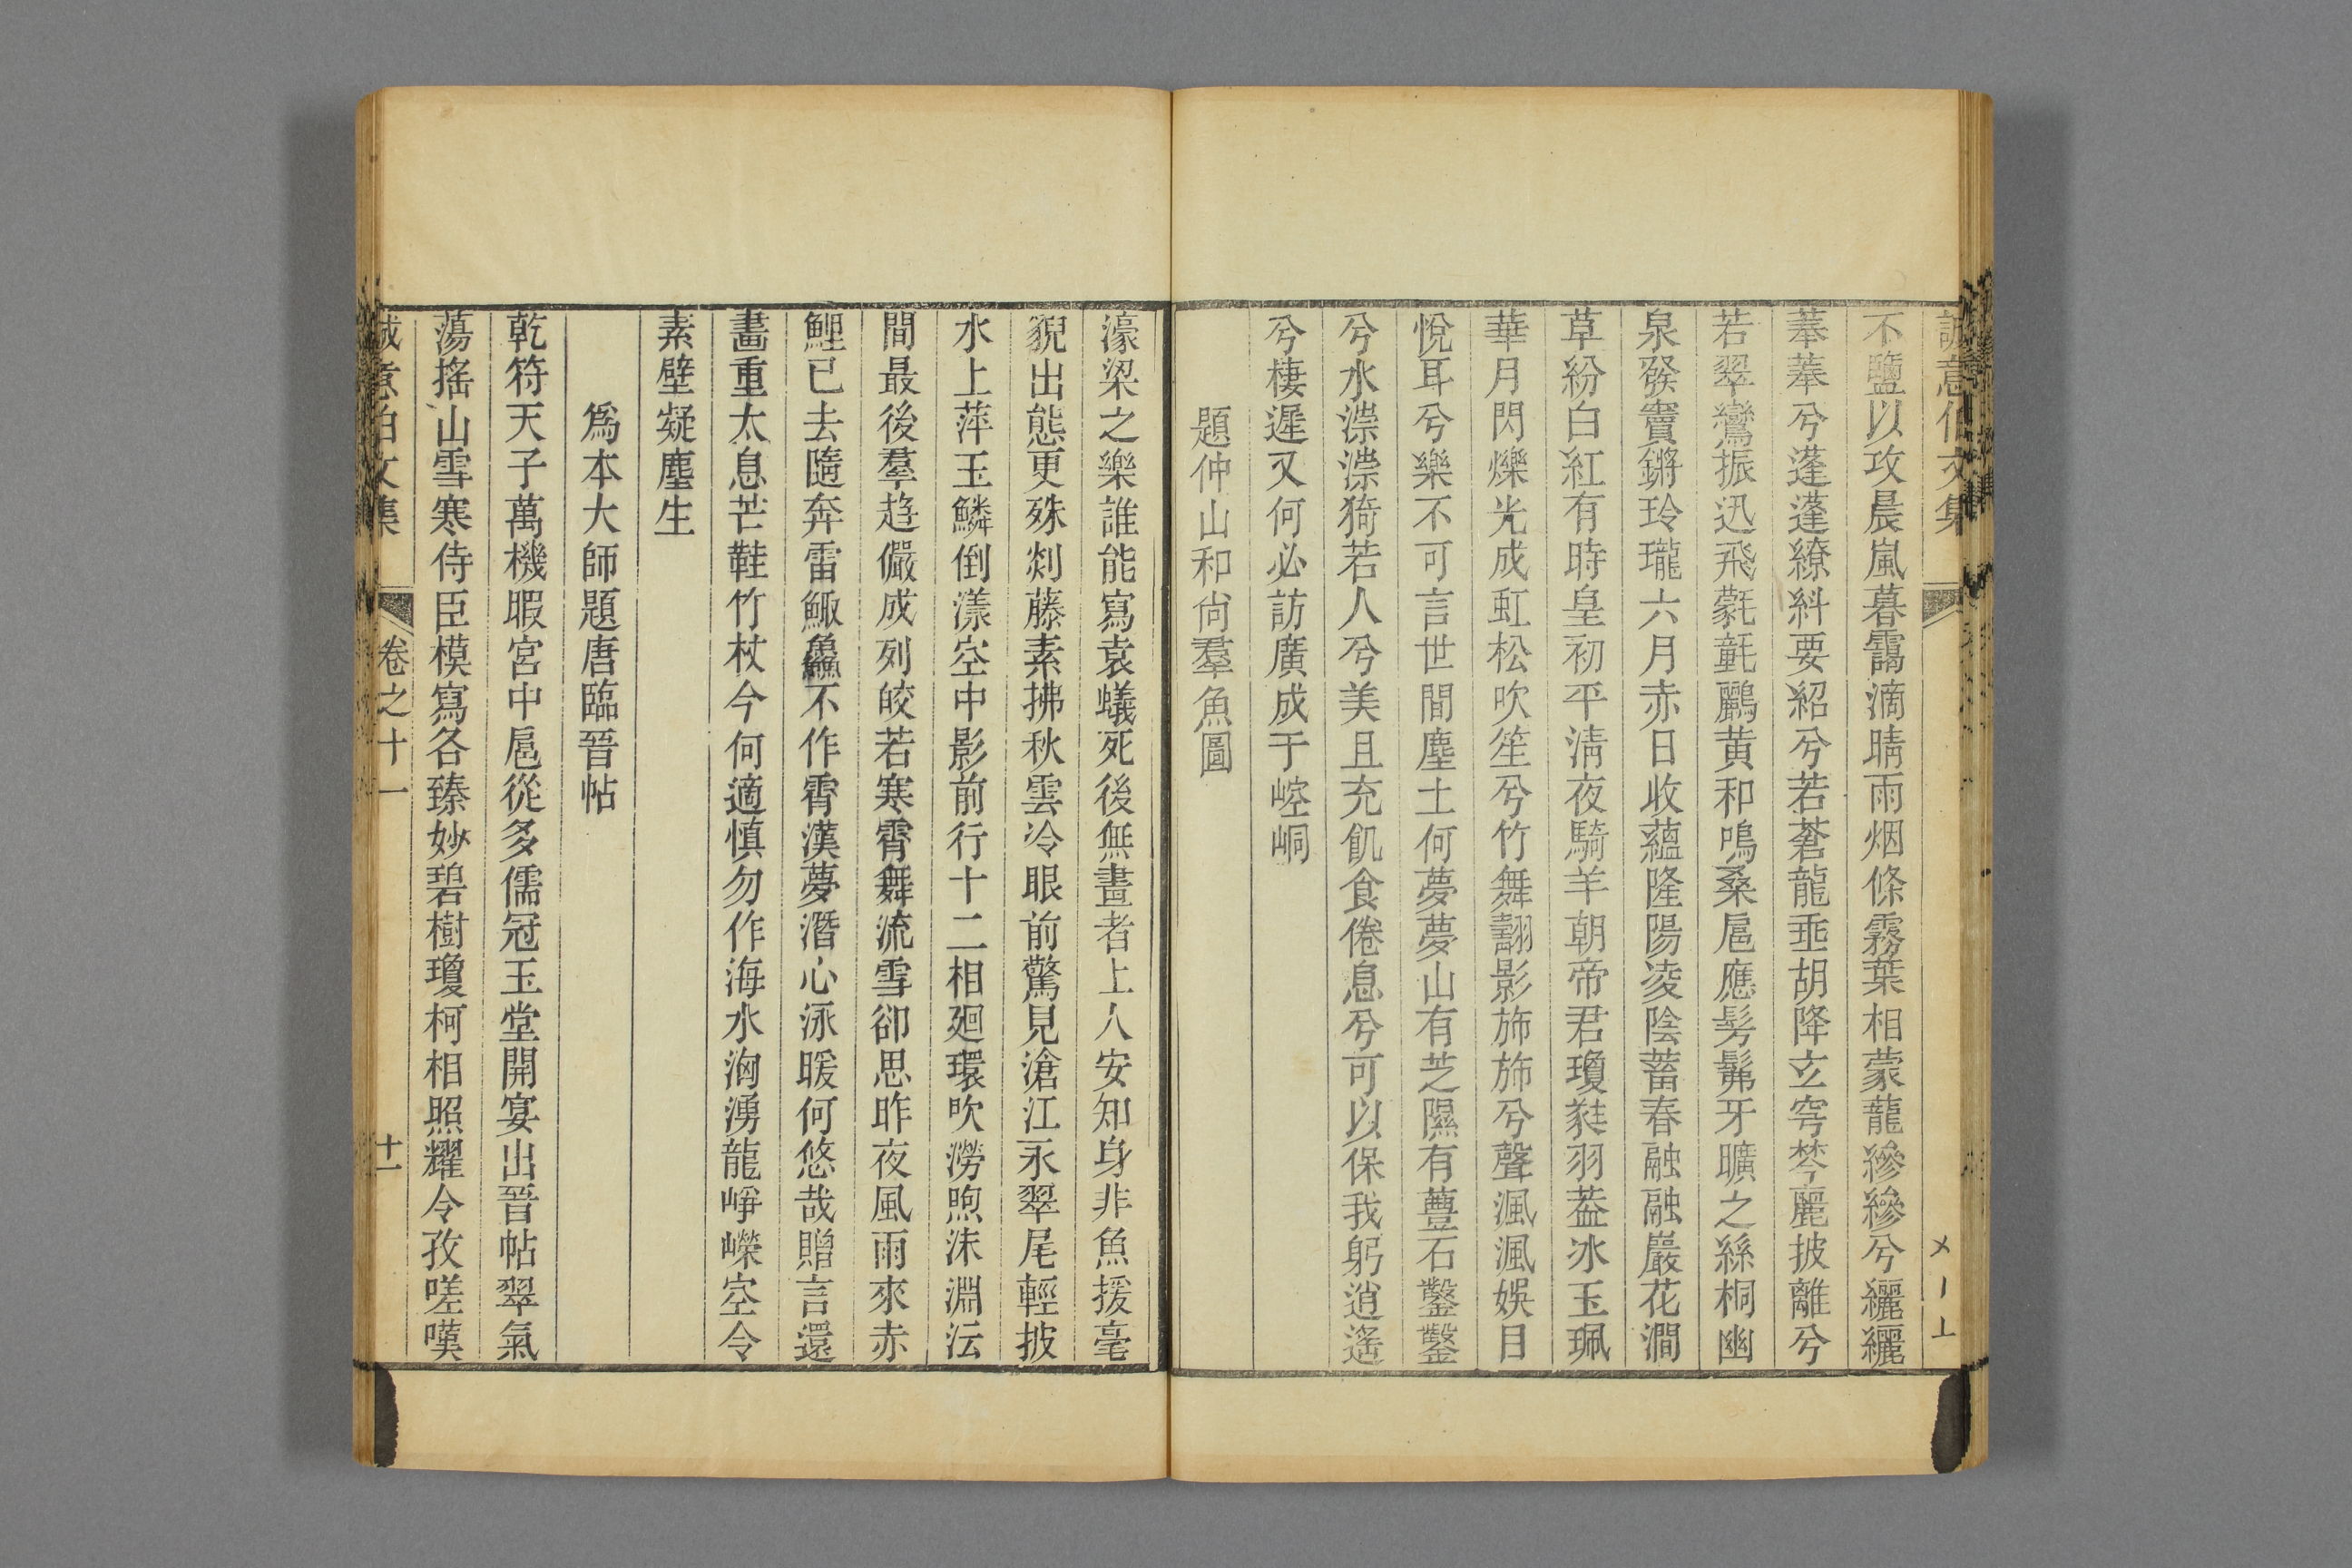 誠意伯文集
不鹽以攻晨嵐暮靄滴晴雨烟條霧葉相蒙蘢縿縿兮纚纚
菶菶兮蓬蓬繚糾要紹兮若蒼龍垂胡降玄穹棽麗披離兮
若翠鸞振迅飛氋氃鸝黄和鳴桑扈應髣髴牙曠之絲桐幽
泉發竇鏘玲瓏六月赤日收蘊隆陽凌陰蓄春融融巖花澗
草紛白紅有時皇初平淸夜騎羊朝帝君瓊㽔羽葢冰玉珮
華月閃爍光成虹松吹笙兮竹舞翿影旆旆兮聲渢渢娛目
悅耳兮樂不可言世間塵土何夢夢山有芝隰有虋石鑿鑿
兮水漴漴猗若人兮美且充飢食倦息兮可以保我躬逍遙
兮棲遲又何必訪廣成于崆峒
題仲山和尙羣魚圖
濠梁之樂誰能寫袁蟻死後無畫者上人安知身非魚援毫
貎出態更殊剡藤素拂秋雲冷眼前驚見滄江永翠尾輕披
水上萍玉鱗倒漾空中影前行十二相廻環吹澇煦沫淵沄
間最後羣趋儼成列皎若寒霄舞流雪卻思昨夜風雨來赤
鯉已去隨奔雷鯫鱻不作霄漢夢潛心泳暖何悠哉贈言還
畫重太息芒鞋竹杖今何適慎勿作海水洶湧龍崢嶸空令
素壁凝塵生
爲本大師題唐臨晉帖
乾符天子萬機暇宮中扈從多儒冠玉堂開宴出晉帖翠氣
蕩搖山雪寒侍臣模寫各臻妙碧樹瓊柯相照耀令孜嗟嘆
誠意伯文集
卷之十一
十一